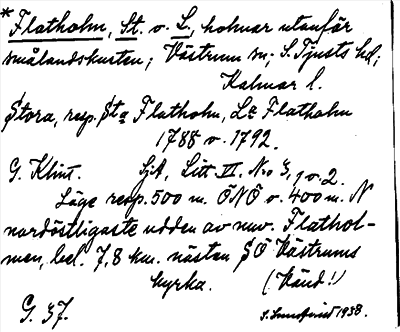 * Flatholm, St. o. L., holmar utanför
smålandskusten; Västrum sn; S. Tjusts hd;
Kalmar l.
Stora, resp. Sta Flatholm, La Flatholm
1788 o. 1792.
G. Klint. Sjå, Litt. VI. No 3, 1 o. 2.
Läge resp. 500 m. ÖNÖ o. 400 m. N
nordöstligaste udden av nuv. Flathol-
men, bel. 7,8 km. nästan SÖ Västrums
kyrka. (Vänd!)
G. 37. S. 1938.